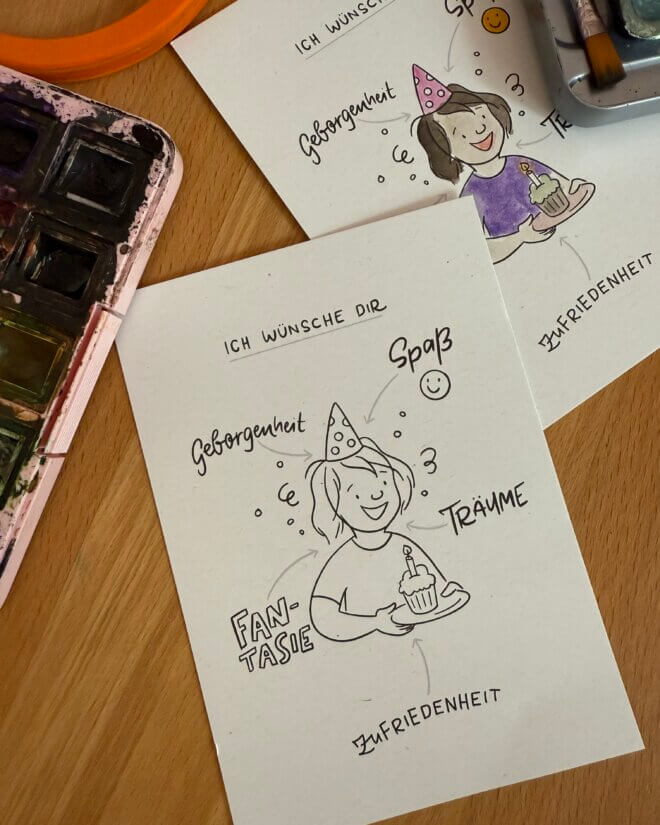 ICH WÜNSCHE
Geborgenheit
ZUFRIEDENHEIT
ICH WÜNSCHE DIR
Spaß
Geborgenheit
TRÄUME
FAN-
TASIE
ZUFRIEDENHEIT